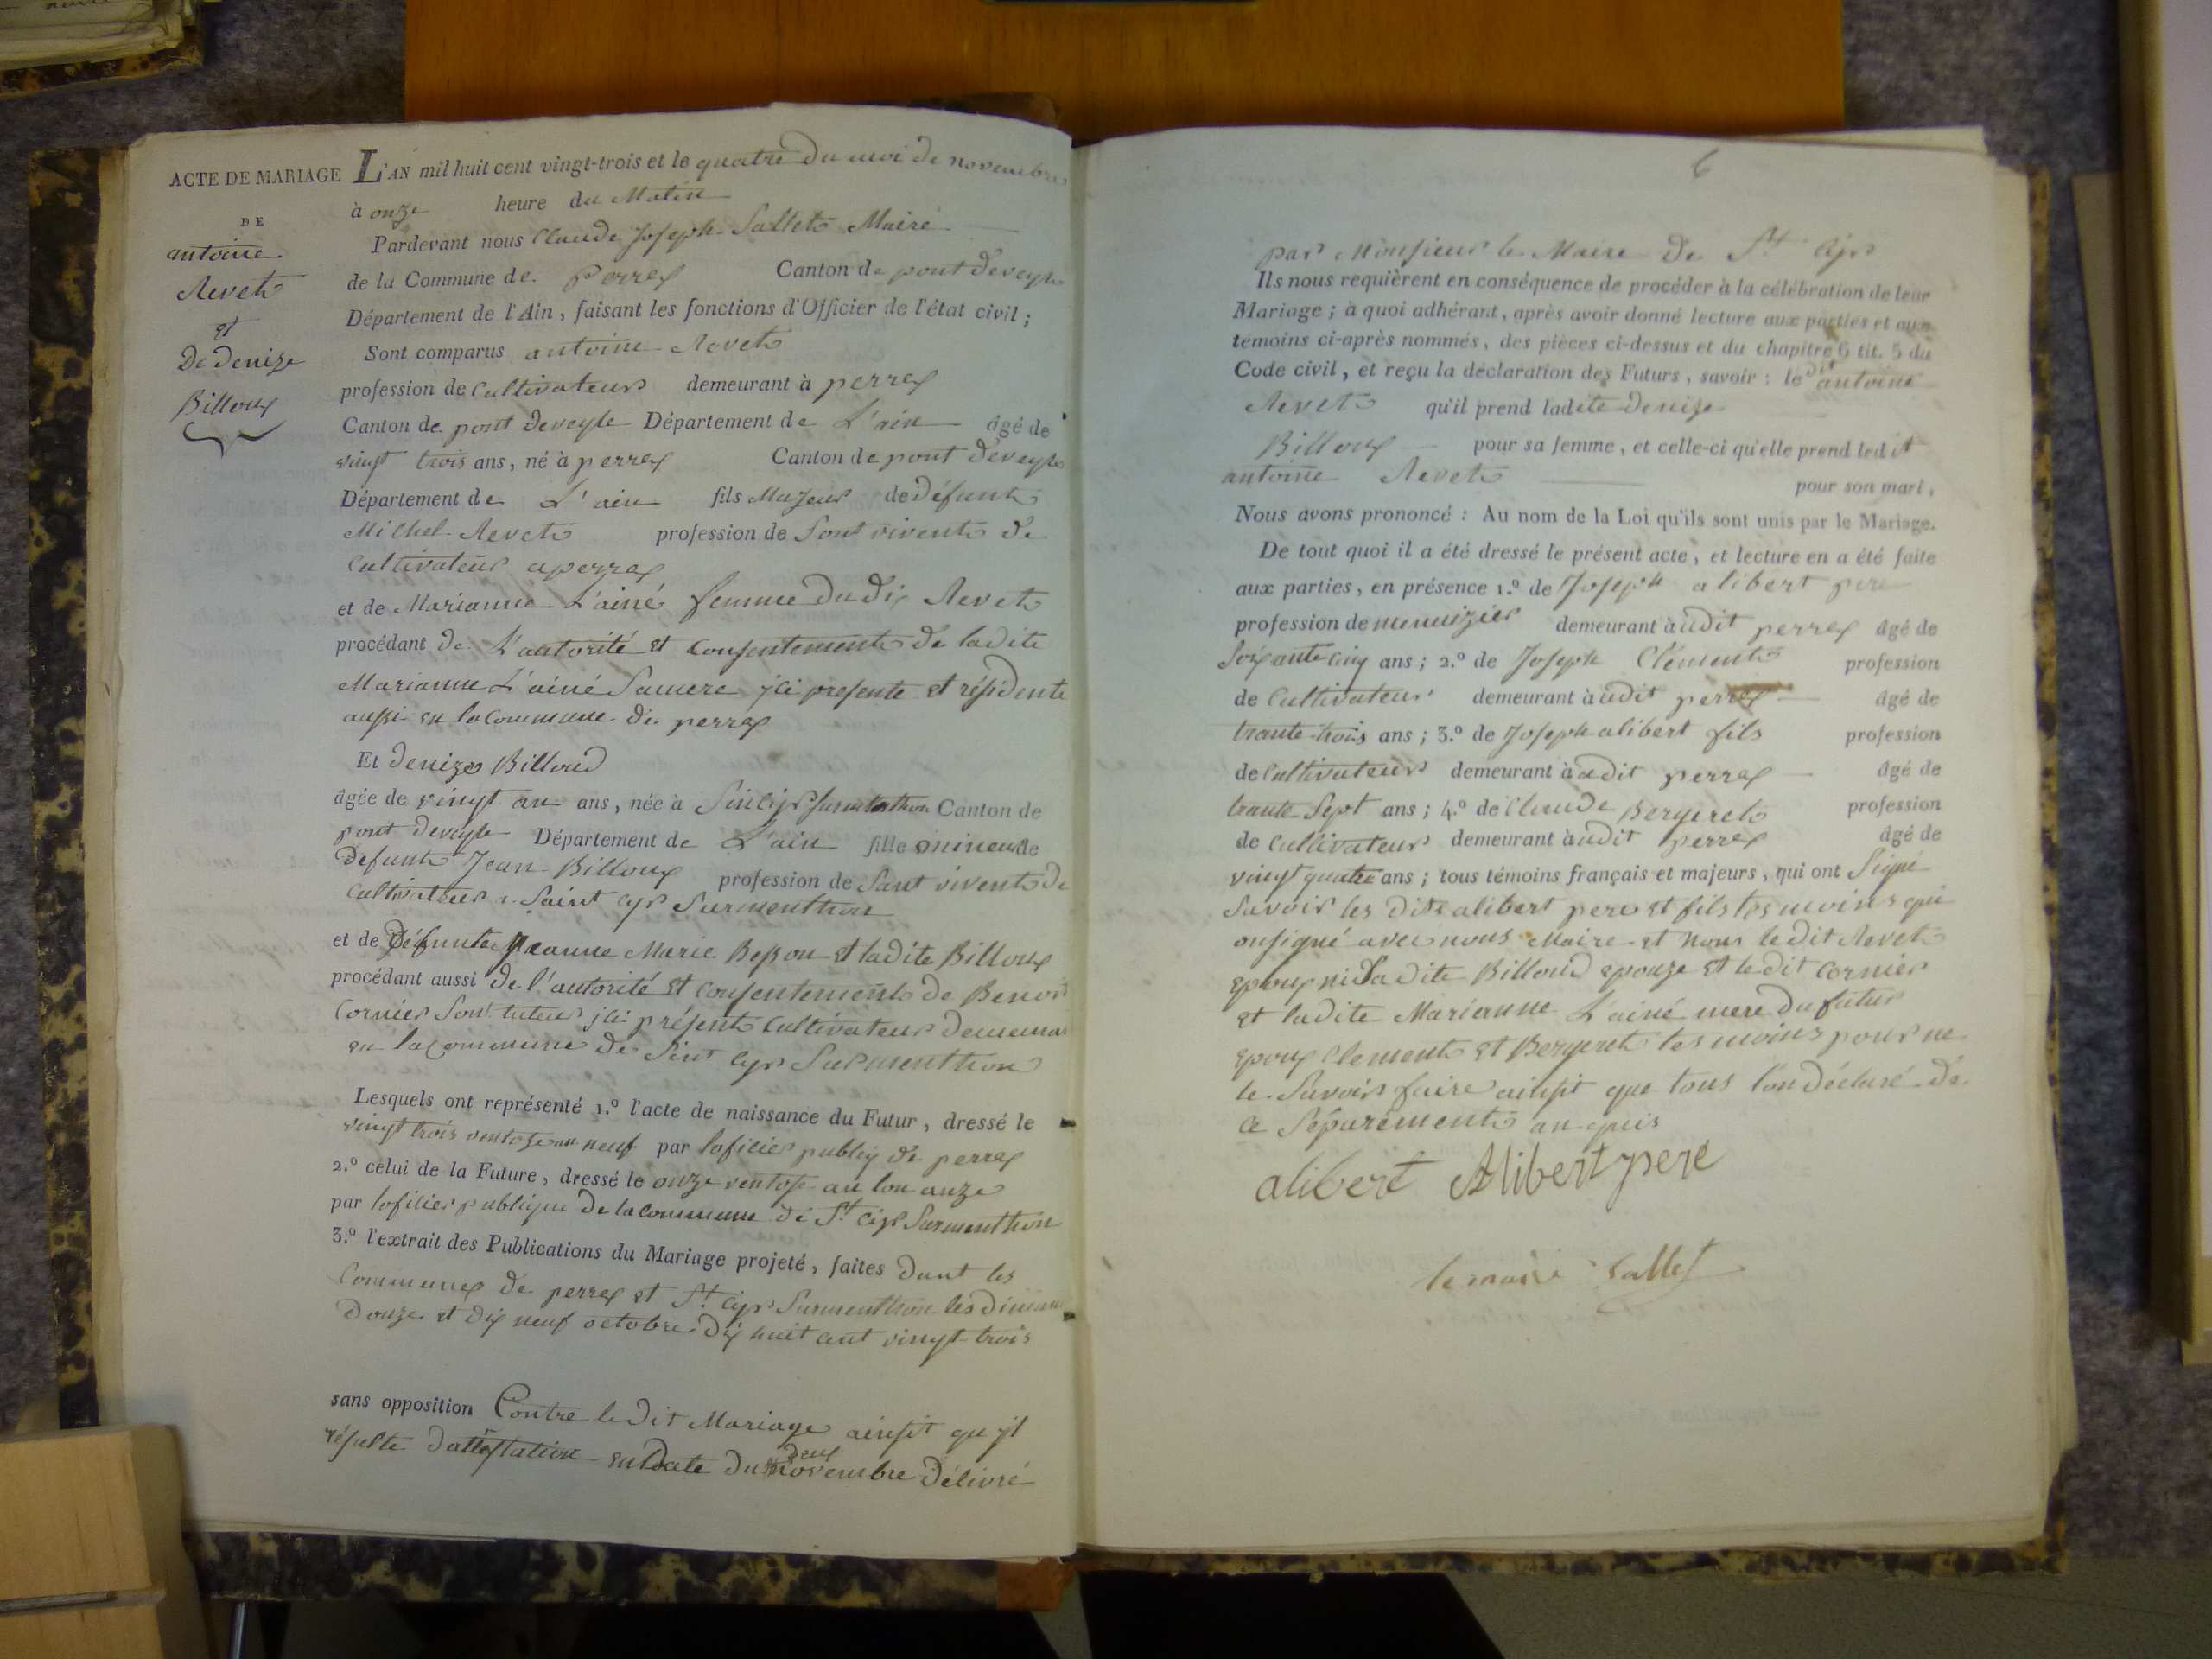 ACTE DE MARIAGE
DE
antoine
Revet
et
De denize
Billoux
L'AN mil huit cent vingt-trois et le quatre du moi de novembre
à onze heure du Matin
Pardevant nous Claude Joseph Sallet Maire
de la Commune de Perrex Canton de pont deveyle
Département de l'Ain, faisant les fonctions d'Officier de l'état civil;
Sont comparus antoine Revet
profession de Cultivateur demeurant à perrex
Canton de pont deveyle Département de L'ain âgé de
vingt trois ans, né à perrex Canton de pont deveyle
Département de L'ain fils Majeur de défunt
Michel Revet profession de Sont vivent de
Cultivateur a perrex
et de Marianne L'ainé femme du dis Revet
procédant de L'autorité et Consentement de ladite
Marianne L'ainé Samere jci presente et résidente
aussi en la commune de perrex
Et denize Billoud
âgée de vingt an ans, née à Sincyr Surmenthon Canton de
pont deveyle Département de L'ain fille mineur de
Defunt Jean Billoux profession de Sant vivent de
Cultivateur a Saint Cyr Surmenthon
et de Défunte Jeanne Marie Besson et ladite Billoux
procédant aussi de l'autorité et Consentement de Benoit
Cornier Sont tuteur jci présent Cultivateur demeura
en la commune de Sint Cyr Surmenthon
Lesquels ont représenté 1.º l'acte de naissance du Futur, dressé le
vingt trois ventoze an neuf par lofilier publiq de perrex
2.º celui de la Future, dressé le onze ventose an lon onze
par lofilier publique de la commune de St. Cyr Surmenthon
3.º l'extrait des Publications du Mariage projeté, faites dant les
Communes de perrex et St. Cyr Surmenthon les diman
Douze et dix neuf octobre dix huit cent vingt-trois
sans opposition Contre le dit Mariage ainsit qu jl
résulte dattestation en Date du deux novembre délivré
6
par Monsieur le Maire de St. Cyr
Ils nous requièrent en conséquence de procéder à la célébration de leur
Mariage; à quoi adhérant, après avoir donné lecture aux parties et aux
témoins ci-après nommés, des pièces ci-dessus et du chapitre 6 tit. 5 du
Code civil, et reçu la déclaration des Futurs, savoir: le dit antoine
Revet qu'il prend ladite denize
Billoux pour sa femme, et celle-ci qu'elle prend ledit
antoine Revet pour son mari,
Nous avons prononcé: Au nom de la Loi qu'ils sont unis par le Mariage.
De tout quoi il a été dressé le présent acte, et lecture en a été faite
aux parties, en présence 1.º de Joseph alibert pere
profession de menuizier demeurant à udit perrex âgé de
Soixante cinq ans; 2.º de Joseph Clément profession
de Cultivateur demeurant à udit perrex âgé de
trante trois ans; 3.º de Joseph alibert fils profession
de Cultivateur demeurant à udit perrex âgé de
trante Sept ans; 4.º de Claude Bergeret profession
de Cultivateur demeurant à udit perrex âgé de
vingt quatre ans; tous témoins français et majeurs, qui ont Signé
Savoir les dits alibert pere et fils tesmoins qui
onsigné avec nous Maire et nom le dit Revet
epoux ni ladite Billoud epouze et le dit Cornier
et ladite Marianne L'ainé mere du futur
epoux Clement et Bergeret tesmoins pour ne
le Savoir faire ainsit que tous l'on déclaré de
ce Séparement an-quis
alibert Alibert pere
le maire Sallet